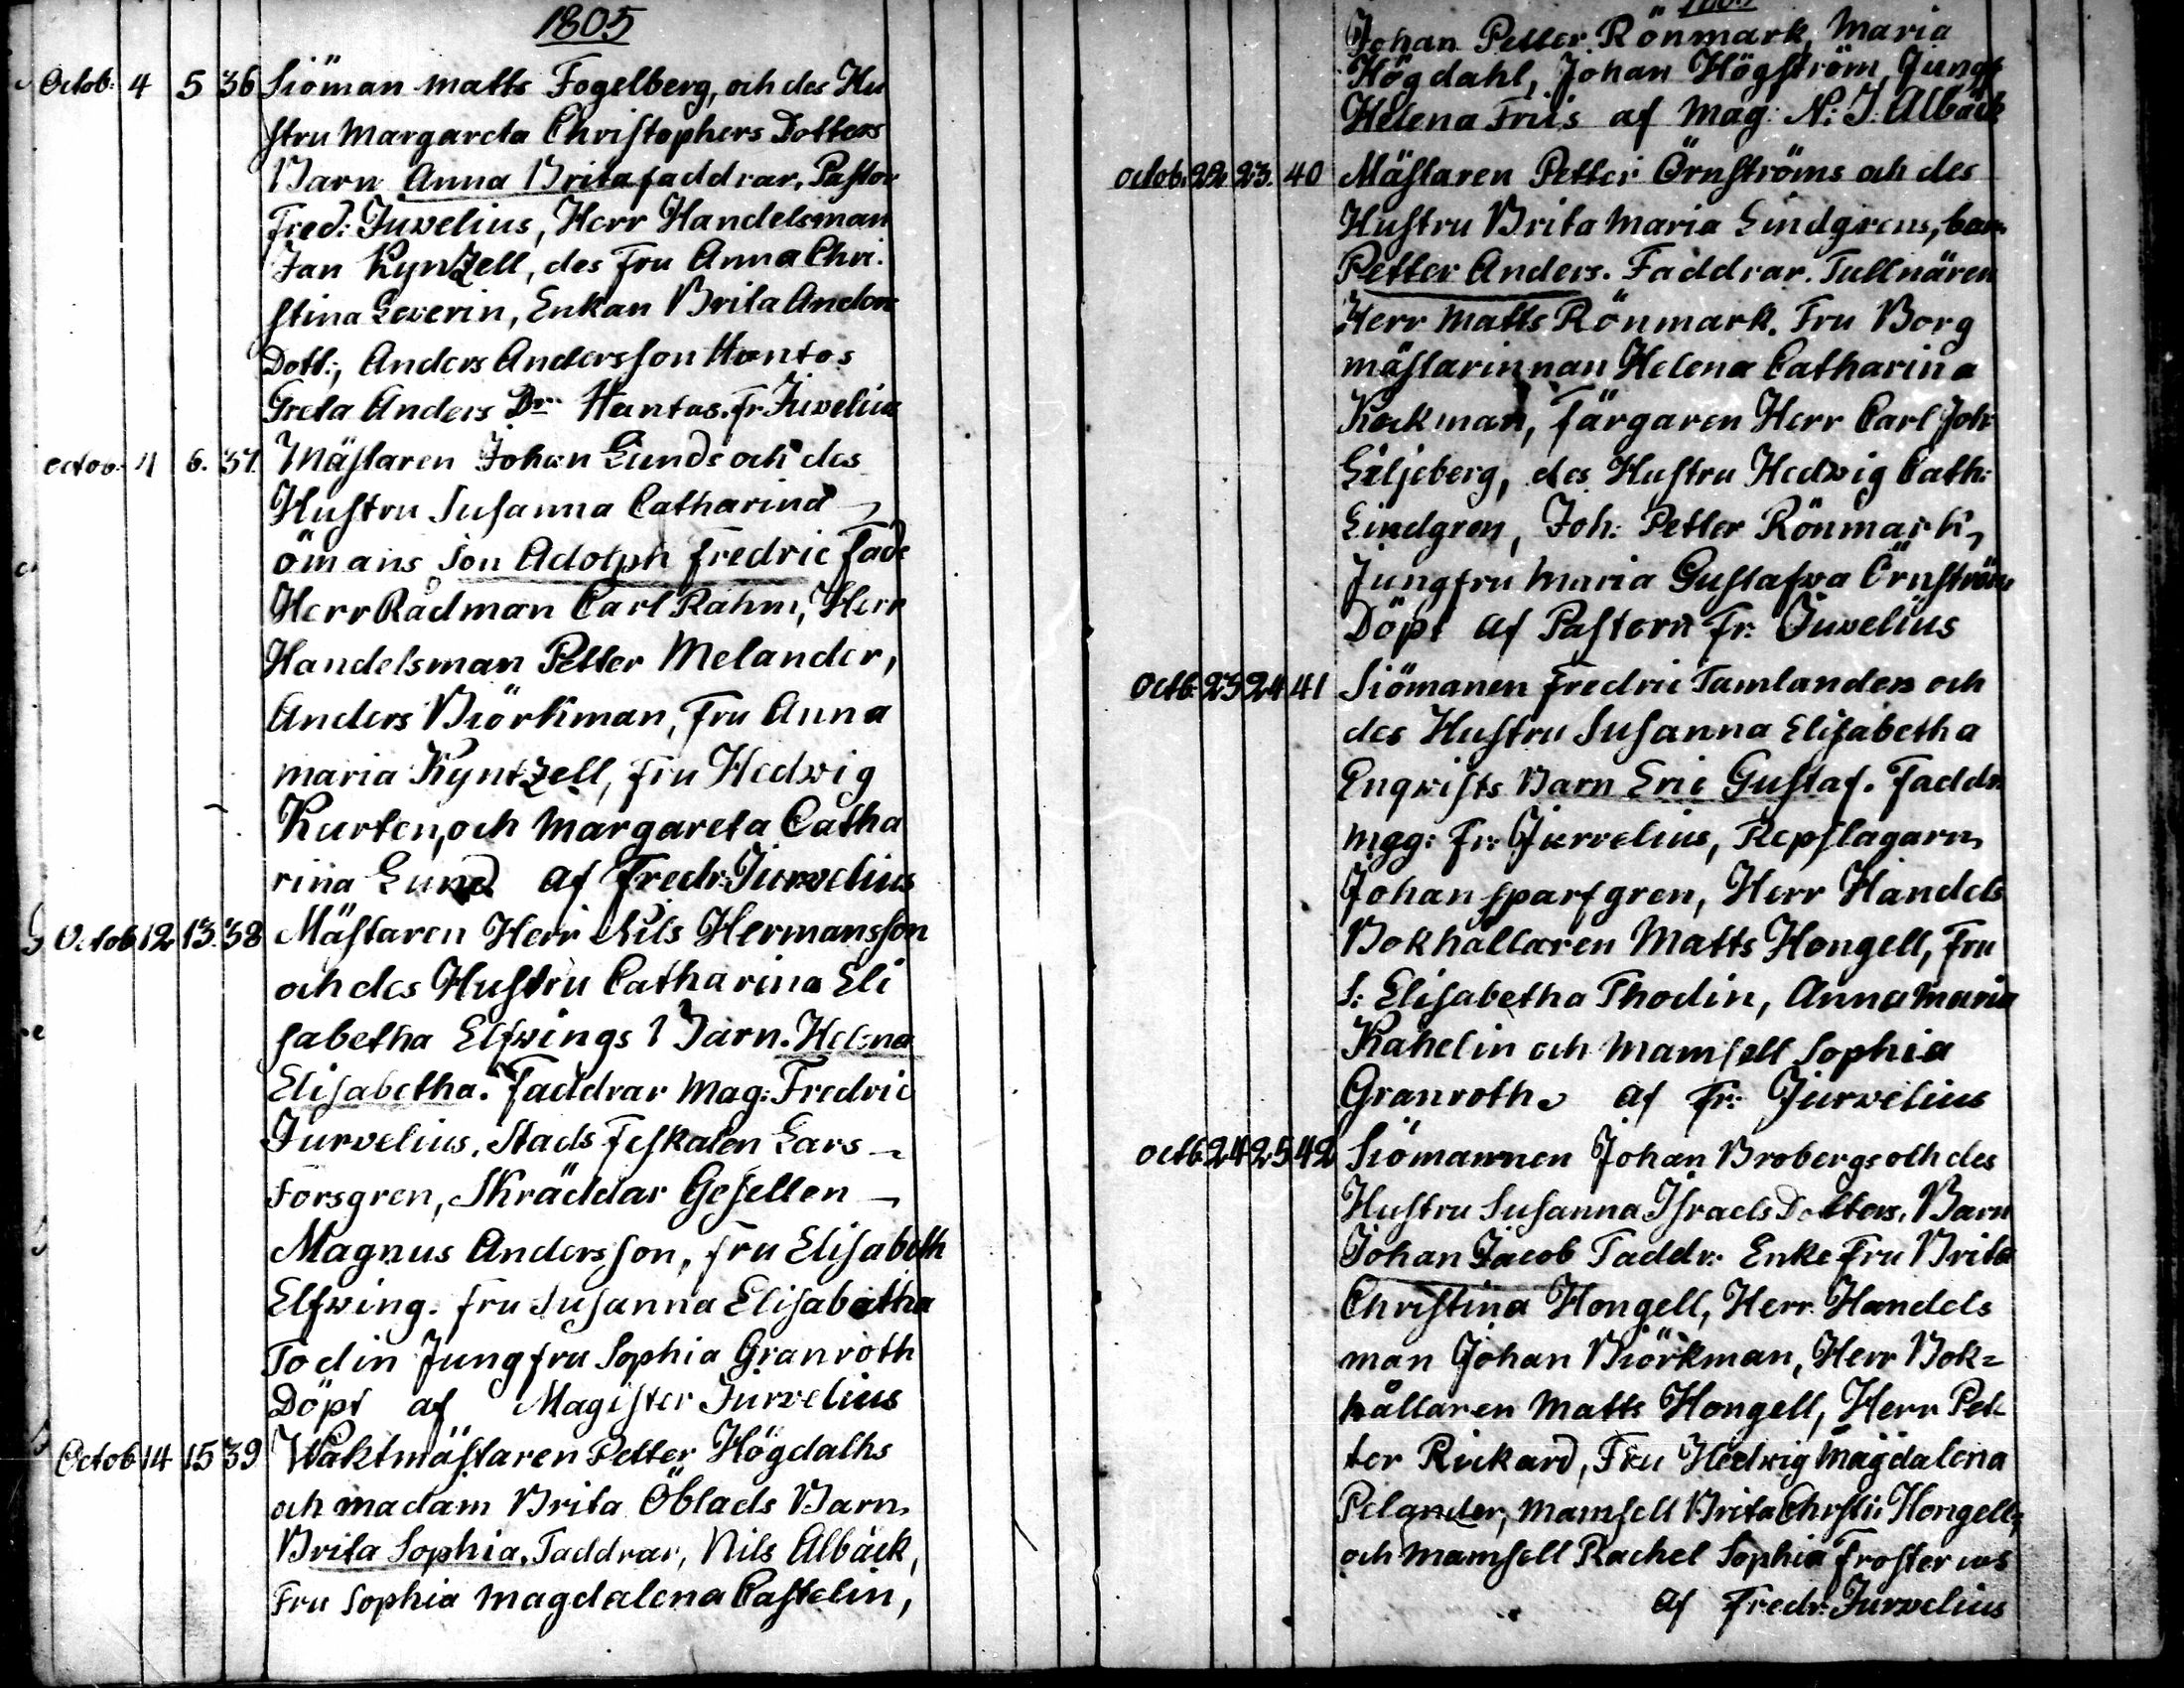 1805
Octob: 4 5 36 Siöman Matts Fogelberg, och des Hu
stru Margareta Christophers Dotters
Barn Anna Brita faddrar, Pastor
Fred: Juvelius, Herr Handelsman
Jan Kyntzell, des Fru Anna Chri-
stina Leverin, Enkan Brita Anders
Dott:, Anders Andersson Hantos
Greta Anders Dr Hantus. Fr Juvelius
Octob: 4 6. 37. Mästaren Johan Lunds och des
Hustru Susanna Catharina
ömans Son Adolph Fredric Fad
Herr Rådman Carl Rahm, Herr
Handelsman Petter Melander,
Anders Biörkman, Fru Anna
Maria Kyntzell, Fru Hedwig
Kurten, och Margareta Catha
rina Lund af Fredr: Jurvelius
Octob 12 13. 38 Mästaren Herr Nils Hermansson
och des Hustru Catharina Eli
sabetha Elfwings Barn. Helena
Elisabetha. Faddrar Mag: Fredric
Jurvelius, Stads Feskalen Lars
Forsgren, Skräddar Gesellen
Magnus Andersson, Fru Elisabeth
Elfwing. Fru Susanna Elisabetha
Todin Jungfru Sophia Granroth
Döpt af Magister Jurvelius
Octob 14 15 39 Waktmästaren Petter Högdalhs
och madam Brita Öblads Barn
Brita Sophia. Faddrar, Nils Albäck,
Fru Sophia Magdalena Castelin,
1805
Johan Petter Rönmark, Maria
Högdahl, Johan Högström, Jungf
Helena Friis af Mag: N: J: Albäck
Octob. 22 23. 40 Mästaren Petter Örnströms och des
Hustru Brita Maria Lindgrens, barn
Petter Anders. Faddrar. Tullnären
Herr Matts Rönmark. Fru Borg
mästarinnan Helena Catharina
Kockman, Färgaren Herr Carl Joh:
Liljeberg, des Hustru Hedwig Cath:
Lindgren, Joh: Petter Rönmark,
Jungfru Maria Gustafwa Örnström
Döpt af Pastorn Fr: Juvelius
Octb 23 24 41 Siömanen Fredric Tamlanders och
des Hustru Susanna Elisabetha
Enqvists Barn Eric Gustaf. Faddr
Mgg: Fr: Jurvelius, Repslagarn
Johan Sparfgren, Herr Handels
Bokhållaren Matts Hongell, Fru
S: Elisabetha Thodin, Anna Maria
Kahelin och Mamsell Sophia
Granroth. af Fr: Jurvelius
Octb 24 25 42 Siömannen Johan Brobergs och des
Hustru Susanna Israels Dotters. Barn
Johan Jacob Faddr: Enke Fru Brita
Christina Hongell, Herr Handels
man Johan Biörkman, Herr Bok=
hållaren Matts Hongell, Herr Pet
ter Rickard, Fru Hedwig Magdalena
Pelander, Mamsell Brita Christi: Hongell,
och Mamsell Rachel Sophia Frosterus
af Fredr: Jurvelius